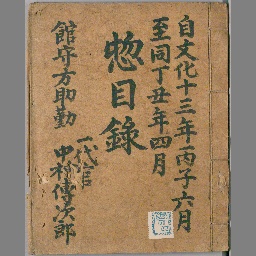 自文化十三年丙子六月
至同丁丑年四月
惣目錄
館守方助勤
一代官
中村傳次郎